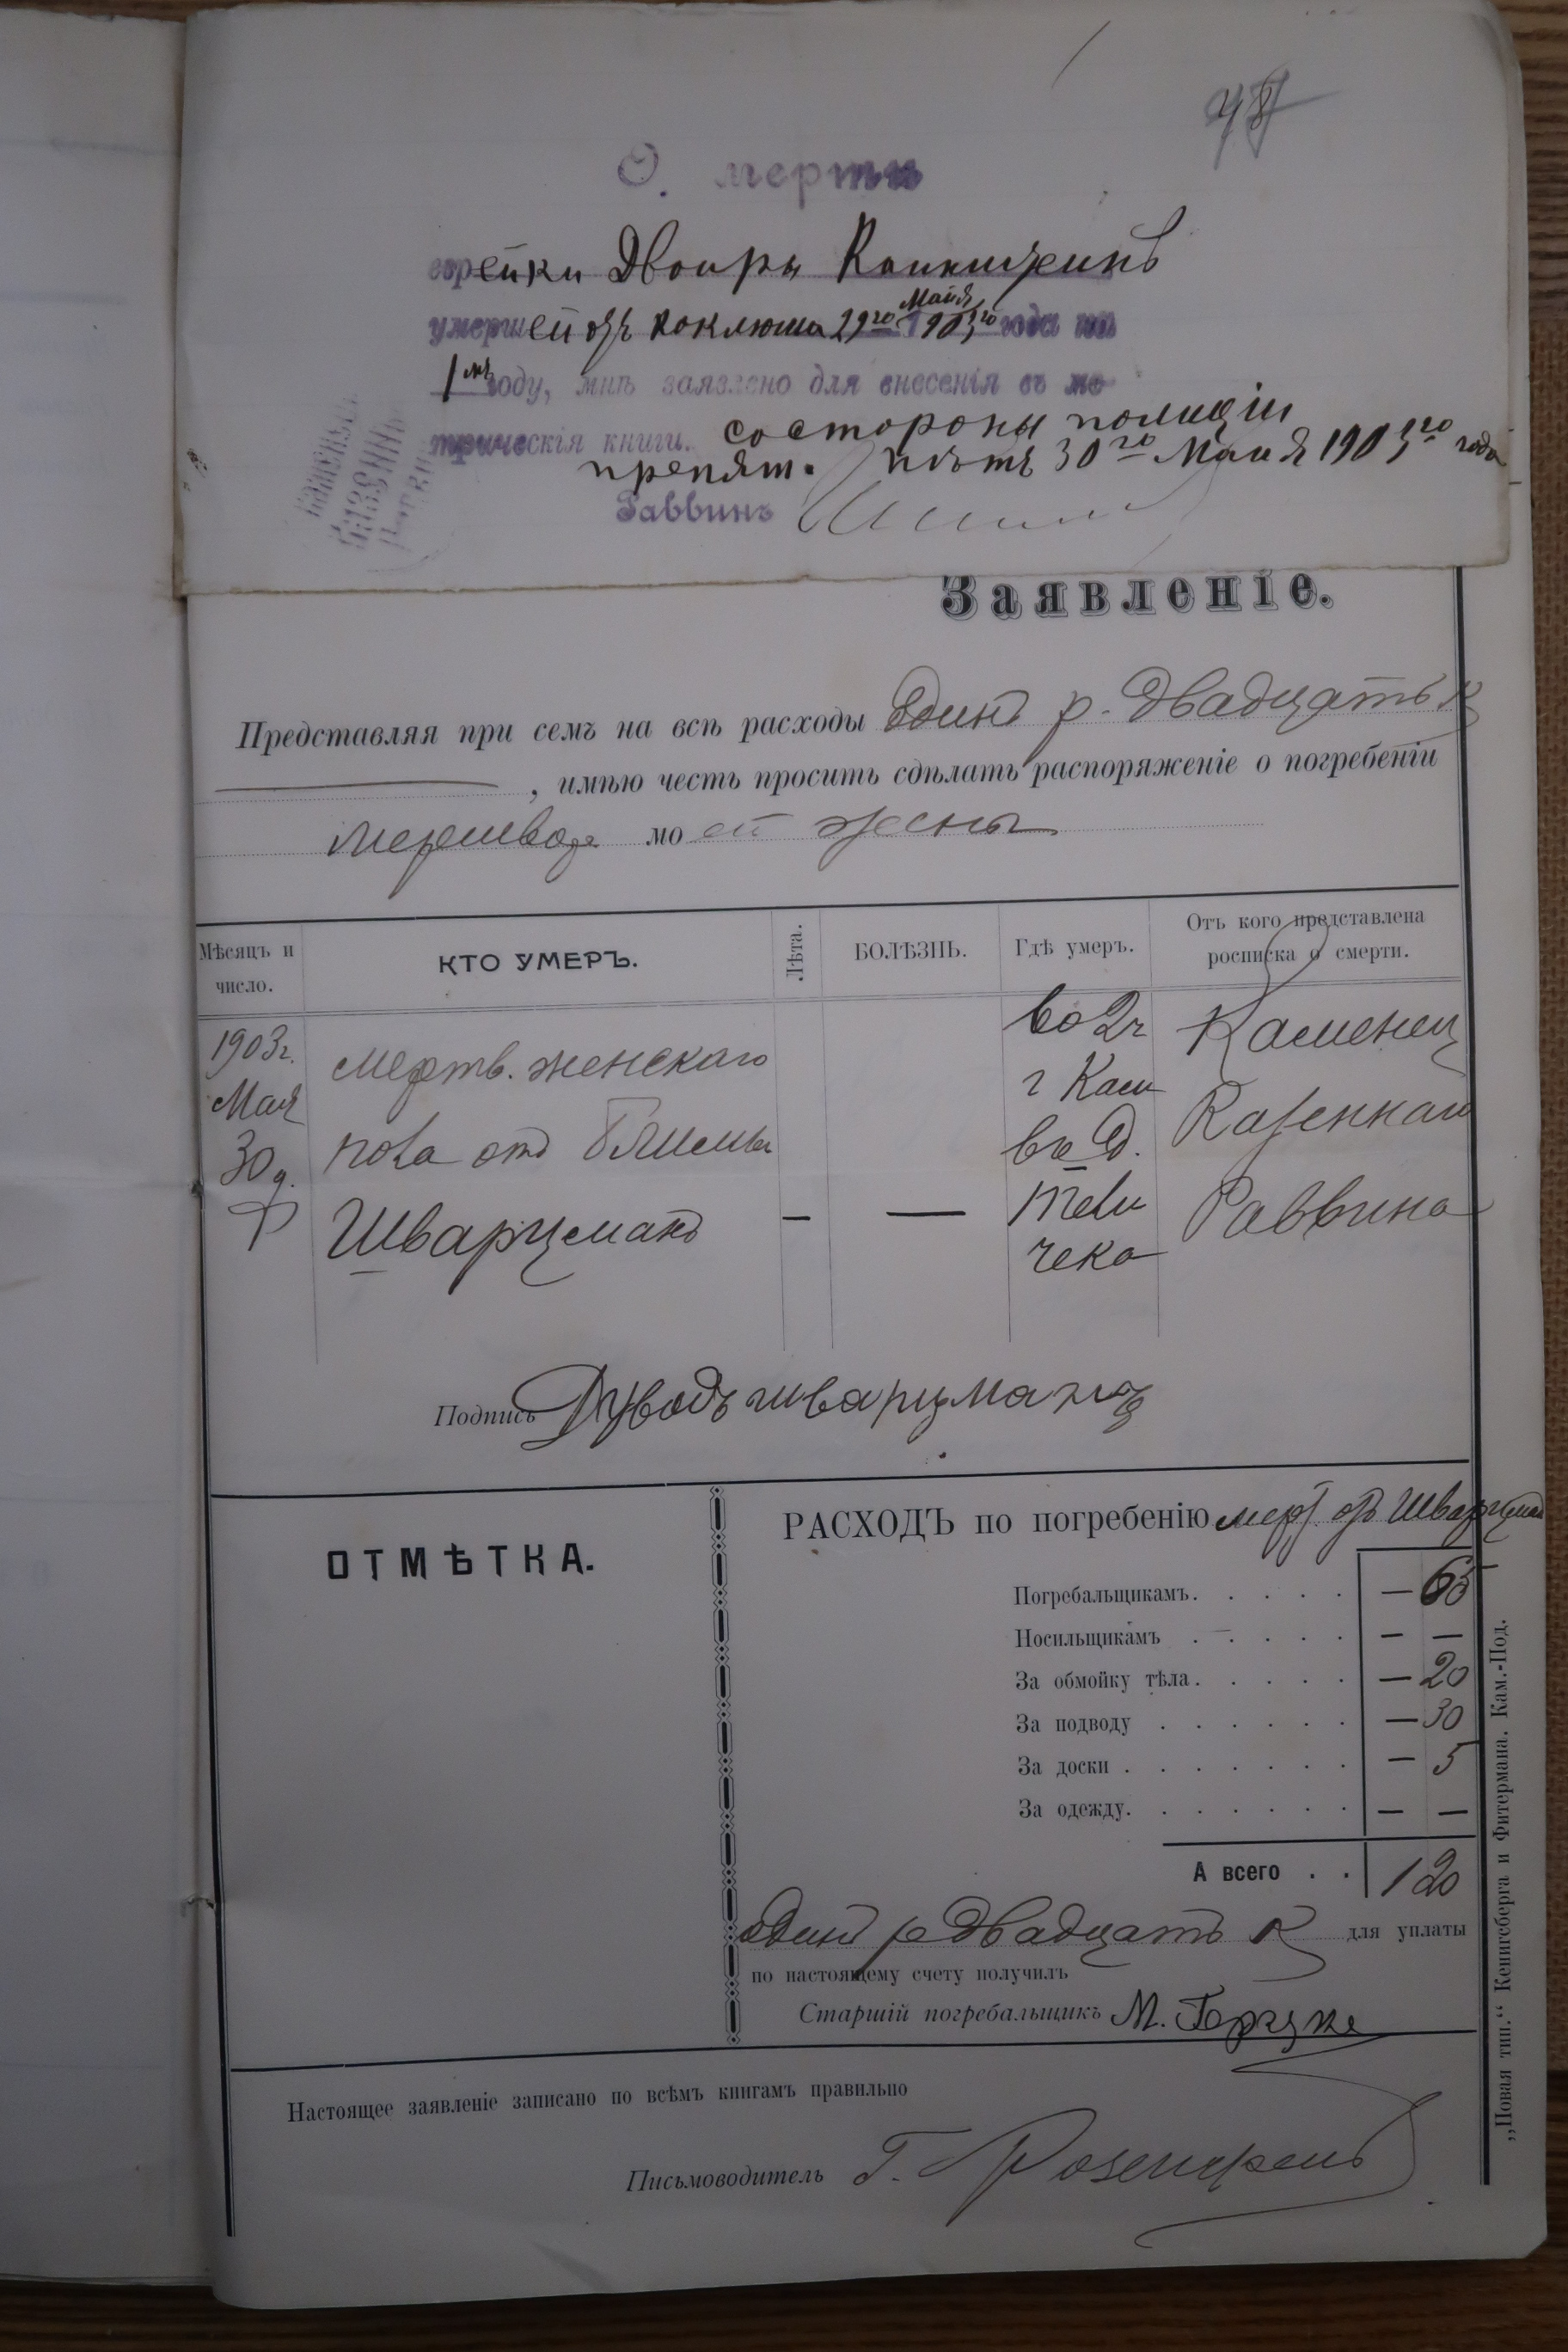 48
О. мерти
еврейки Двойры
умершей отъ коклюша 29го Мая 1903го года на
1мъ году, мнѣ заявлено для внесенія въ ме
трическія книги. состороны полиціи
препят. нѣтъ 30го Мая 1903го года
Раввинъ
Заявленіе.
Представляя при семъ на всѣ расходы Один р. двадцать к
, имѣю честь просить сдѣлать распоряженіе о погребеніи
моей жены
Мѣсяцъ и число.
КТО УМЕРЪ.
Лѣта.
БОЛѢЗНЬ.
Гдѣ умеръ.
Отъ кого представлена росписка о смерти.
1903г.
Мая
30д.
мертв. женскаго
пола от
Шварцман
—
—
во 2ч
г Кам
въ д.
Тели
чека
Каменец
Казеннаго
Раввина
Подпись Дуводъ шварцманъ
ОТМѢТКА.
РАСХОДЪ по погребенію мерт. отъ Шварцман
Погребальщикамъ. — 65
Носильщикамъ — —
За обмойку тѣла. — 20
За подводу — 30
За доски — 5
За одежду. — —
А всего 1 20
один р двадцать к для уплаты
по настоящему счету получилъ
Старшій погребальщикъ М.
Настоящее заявленіе записано по всѣмъ книгамъ правильно
Письмоводитель Г.
„Новая тип.“ Кенигсберга и Фитермана. Кам.-Под.